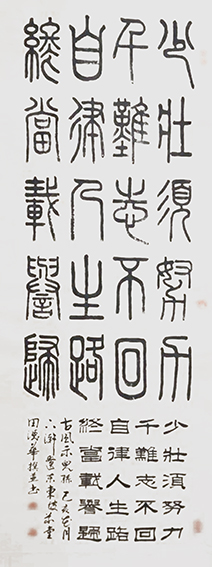 少壯須努力
千難志不回
自律人生路
終當載譽歸
少壯須努力
千難志不回
自律人生路
終當載譽歸
古風示兒孫己亥月
撰並書